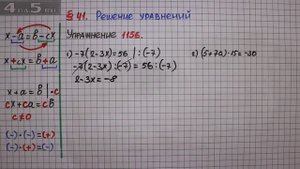 4a5.ru
§ 41. Решение уравнений
Упражнение 1156.
x - a = b - cx
x + cx = b + a
x + a = b | · c
cx + ca = cb
c ≠ 0
(-) · (-) = (+)
(-) · (+) = (-)
1) -7(2-3x) = 56 | : (-7)
-7(2-3x) : (-7) = 56 : (-7)
2-3x = -8
2) (5+7a) · 15 = -30